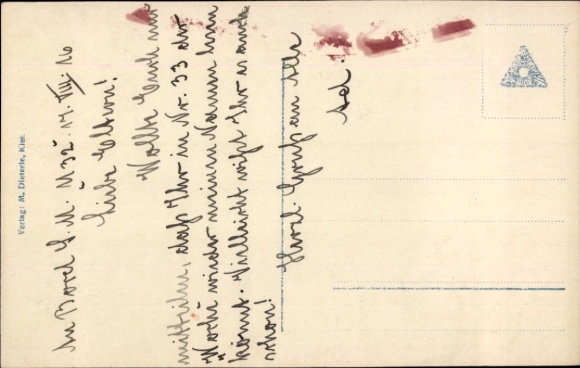 An Bord S.M. U 32. 17. VIII. 16
Liebe Eltern!
Wollte Euch nur
mitteilen, daß Ihr in Nr. 33 der
"Woche wieder meinen Namen lesen
könnt. Vielleicht wißt Ihr es auch
schon!
Herzl. Gruß an Alle
Verlag: M. Dieterle, Kiel